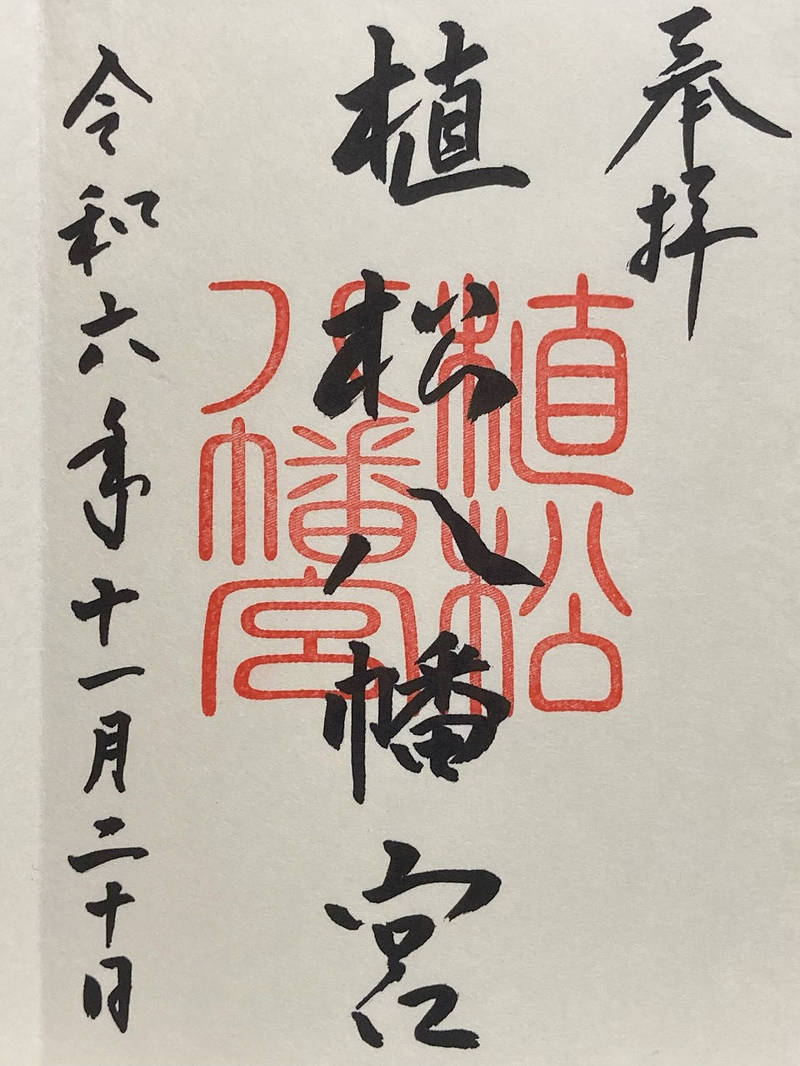 奉拝
植松八幡宮
植松
八幡宮
令和六年十一月二十日